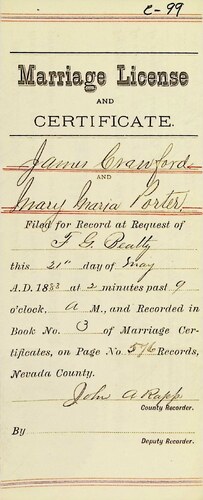 C-99
Marriage License
AND
CERTIFICATE.
James Crawford
AND
Mary Maria Porter,
Filed for Record at Request of
F G Beatty
this 21st day of May
A.D. 1883 at 2 minutes past 9
o'clock, A M., and Recorded in
Book No. 3 of Marriage Cer-
tificates, on Page No. 576 Records,
Nevada County.
John A Rapp
County Recorder.
By
Deputy Recorder.